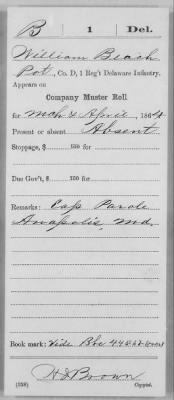 B 1 Del.
William Beach
Pvt., Co. D, 1 Reg't Delaware Infantry.
Appears on
Company Muster Roll
for Mch & April, 1864.
Present or absent Absent
Stoppage, $ 100 for
Due Gov't, $ 100 for
Remarks: Cap Parole
Anapolis, Md.
Book mark: Vide
(358) H S Brown
Copyist.